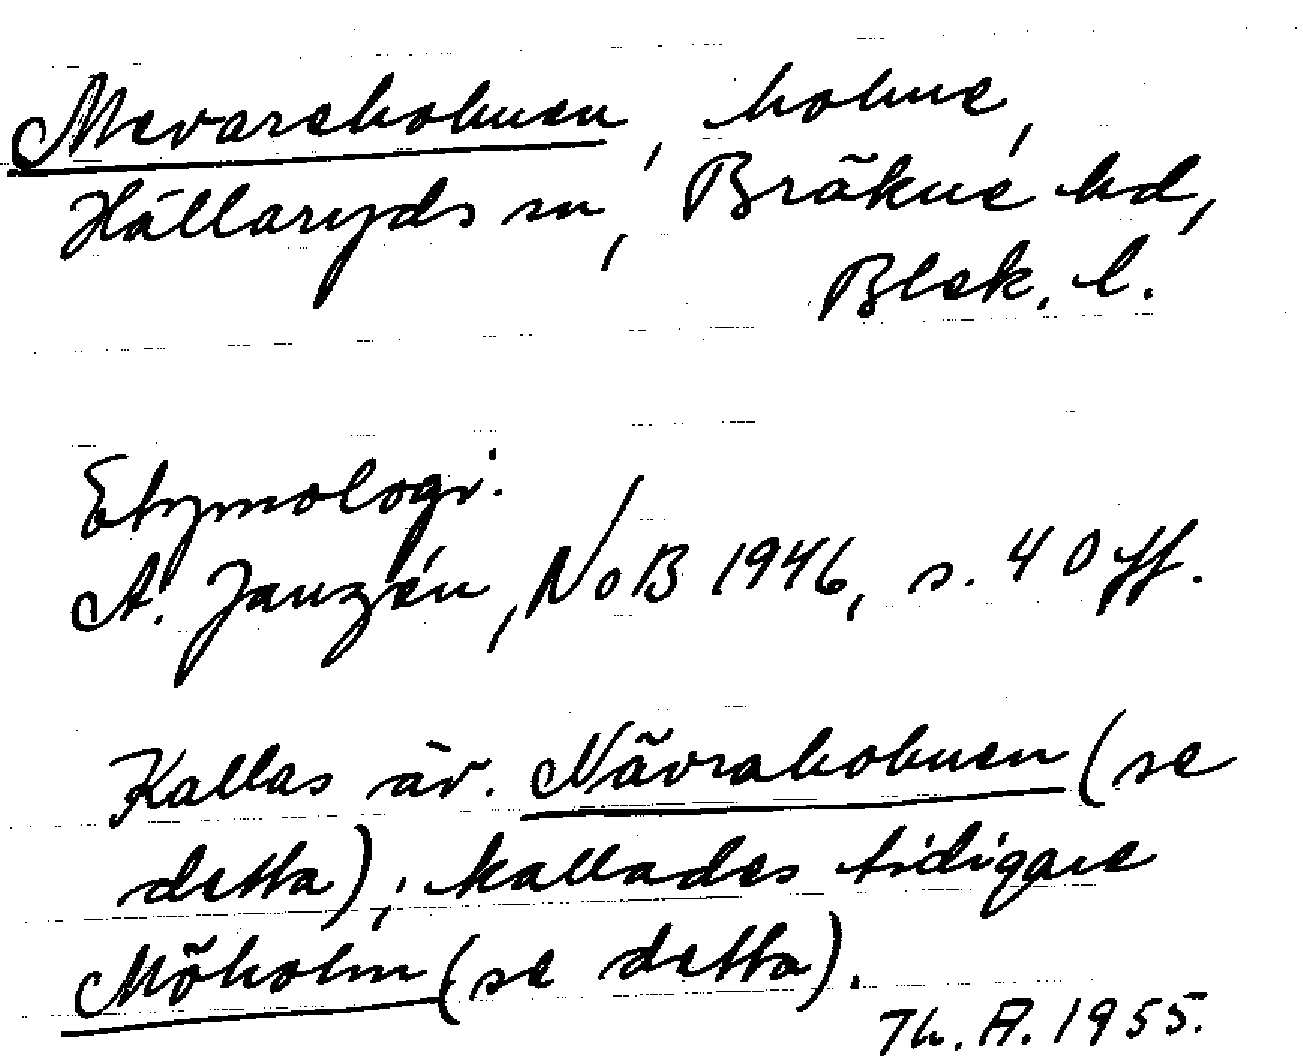 Mevareholmen, holme,
Hällaryds sn, Bräkne hd,
Blek. l.
Etymologi:
A. Janzén, NoB 1946, s. 40 ff.
Kallas äv. Nävraholmen (se
detta); kallades tidigare
Möholm (se detta).
Th. A. 1955.